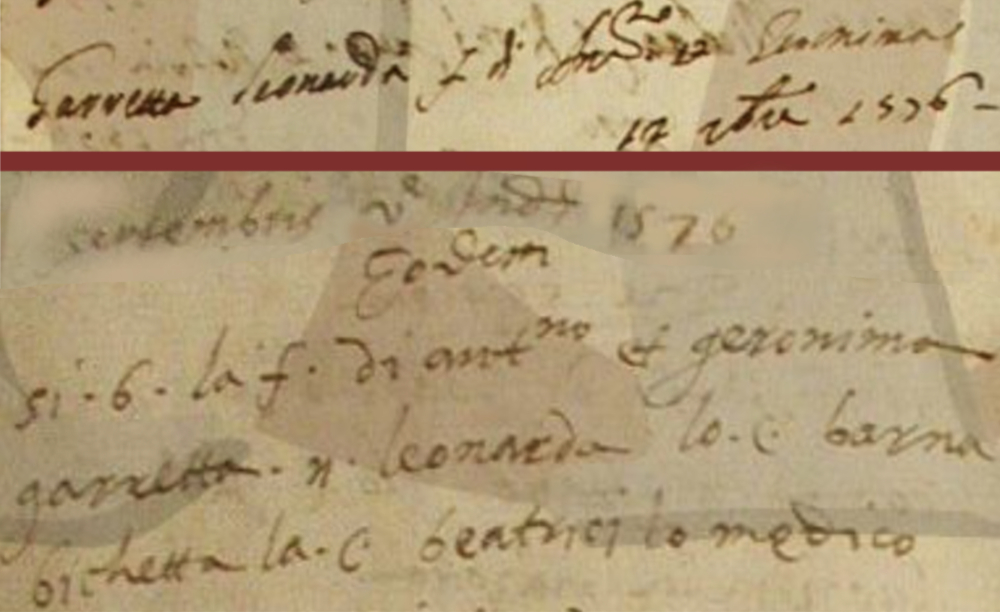 Garretta Leonarda f di Antonino Geronima
17 7bre 1576 -
septembris v Ind 1576
Eodem
si . 6 . la f . di ant^no et geronima
garretta . n . leonarda lo . c . barna
bichetta la . c beatrici lo medico